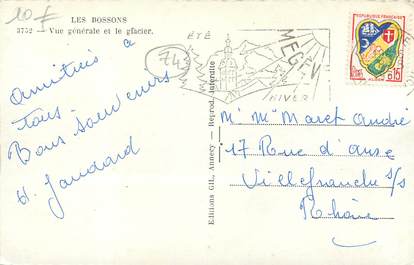 10 F
LES BOSSONS
3752 — Vue générale et le glacier.
74
ÉTÉ
MEGÈVE
HIVER
REPUBLIQUE FRANÇAISE
0,15
Amitiés à
Tous.
Bons souvenirs
Editions GIL, Annecy - Reprod. interdite
Mr Mme Maret André
17 Rue d'Anse
Villefranche s/s
Rhône